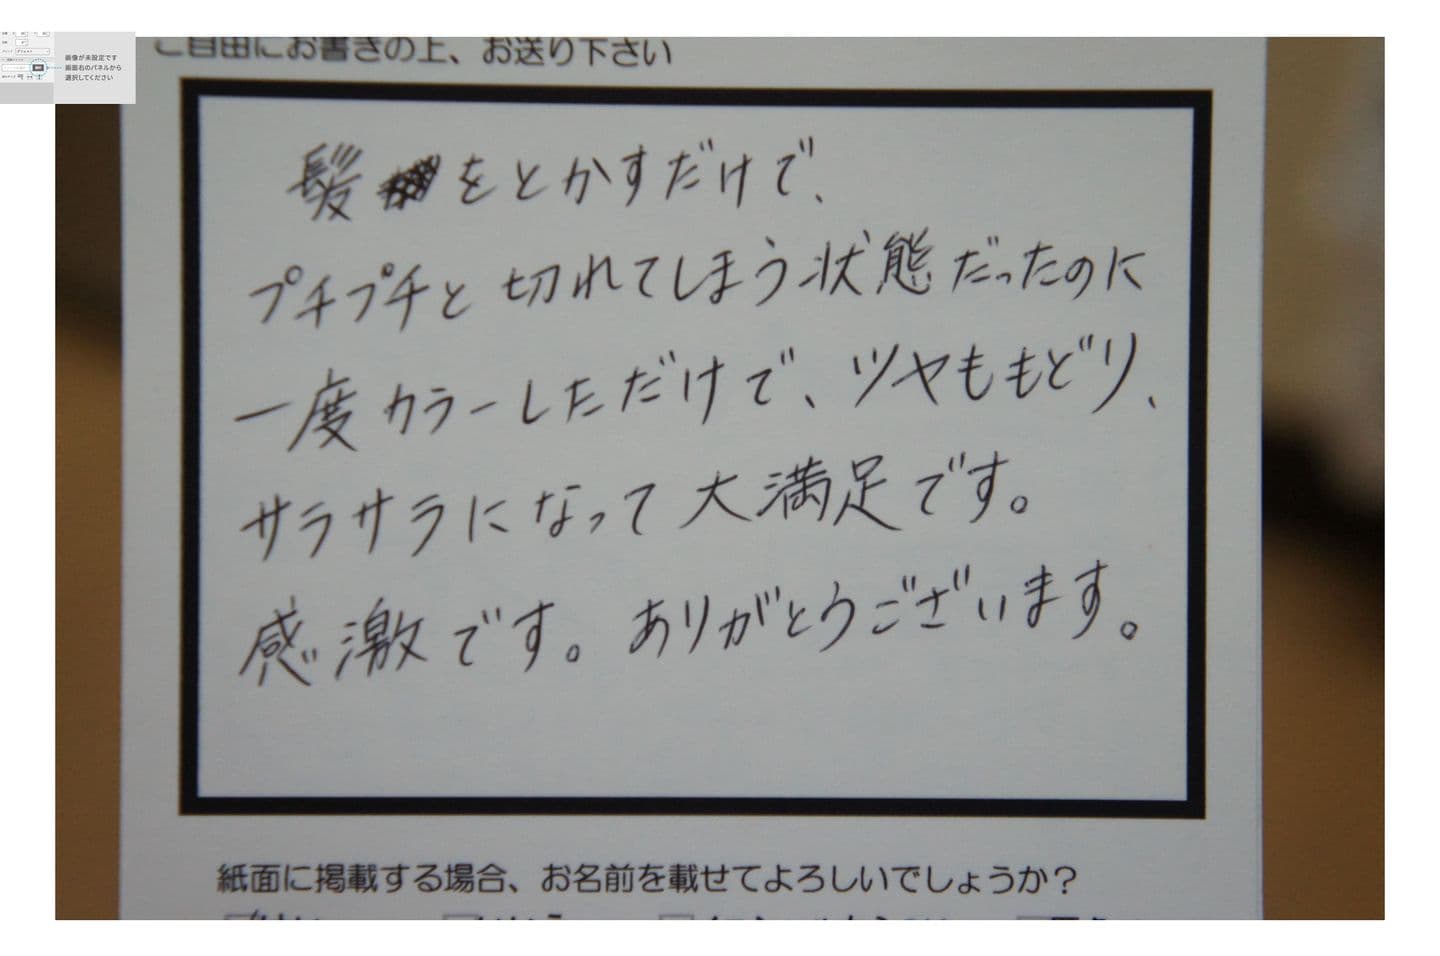 画像が未設定です
画面右のパネルから
選択してください
ご自由にお書きの上、お送り下さい
髪をとかすだけで、
プチプチと切れてしまう状態だったのに
一度カラーしただけで、ツヤももどり、
サラサラになって大満足です。
感激です。ありがとうございます。
紙面に掲載する場合、お名前を載せてよろしいでしょうか？